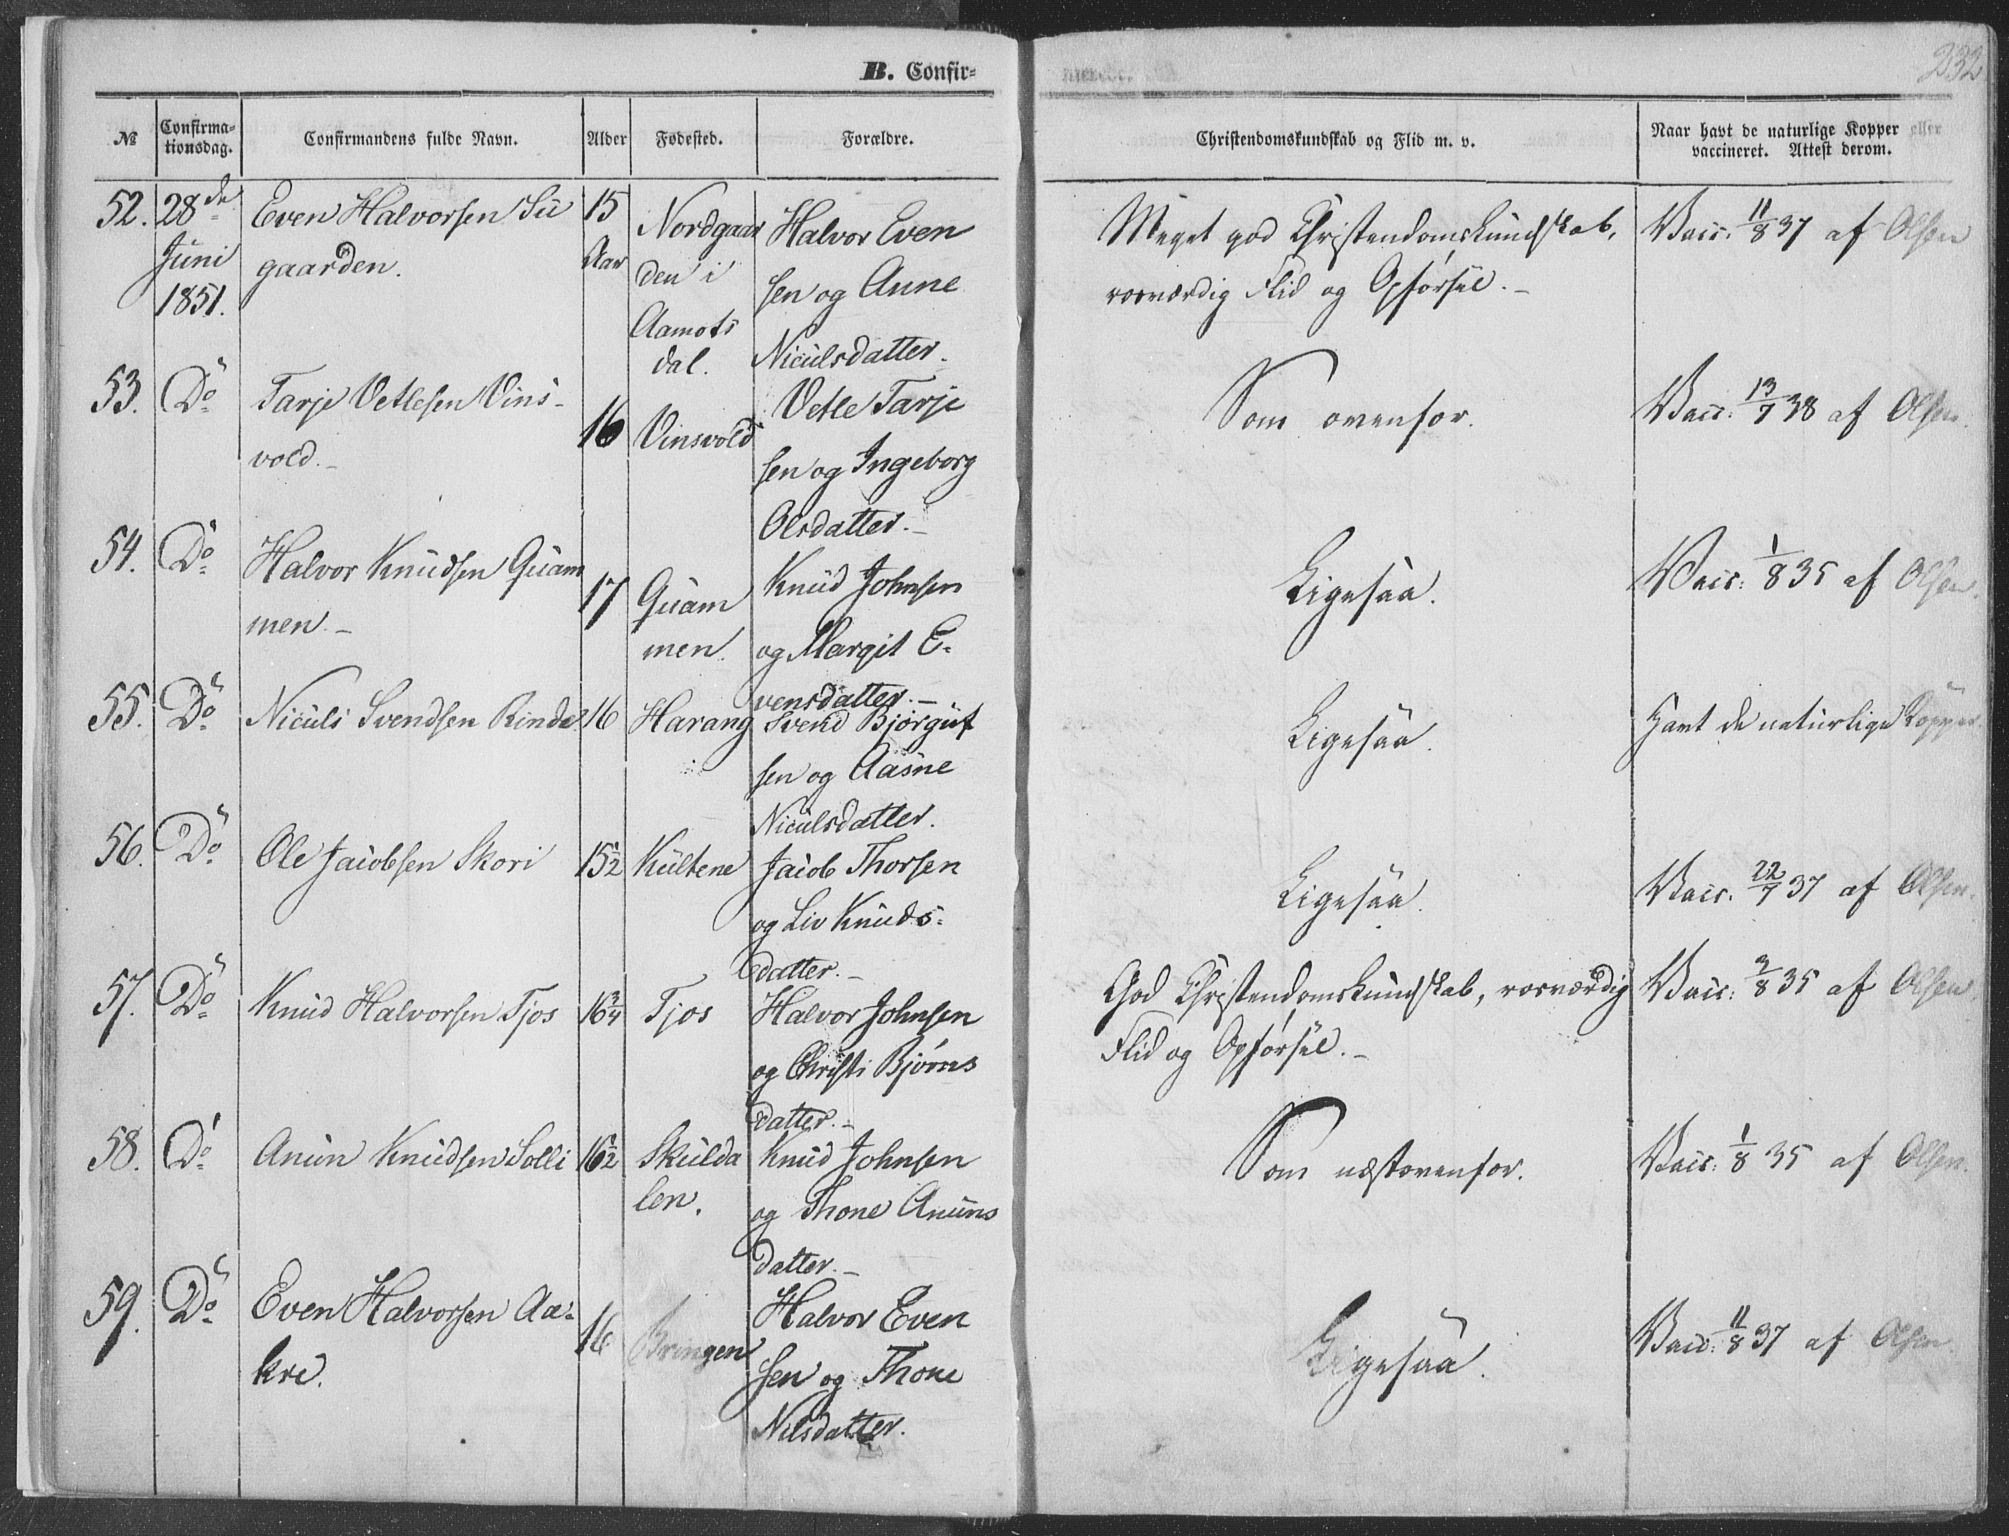 B. Confir=
232
№
Confirma=
tionsdag.
Confirmandens fulde Navn.
Alder
Fødested.
Forældre.
Christendomskundskab og Flid m. v.
Naar havt de naturlige Kopper eller
vaccineret. Attest derom.
52.
28de
Juni
1851.
Even Halvorsen Su
gaarden.
15
Aar
Nordgaar
den i
Aamots
dal.
Halvor Even
sen og Anne
Niculsdatter.
Meget god Christendomskundskab,
rosværdig Flid og Opførsel. -
Vacc. 11/8 37 af Olsen
53.
Do
Tarje Vetlesen Vins-
vold. -
16
Vinsvold
Vetle Tarje
sen og Ingeborg
Olsdatter. -
Som ovenfor.
Vacc: 13/7 38 af Olsen.
54.
Do
Halvor Knudsen Quam
men. -
17
Quam
men.
Knud Johnsen
og Margit E-
vensdatter. -
Ligesaa.
Vacc: 1/8 35 af Olsen.
55.
Do
Niculs Svendsen Rinde
16
Harang
Svend Bjørguf
sen og Aasne
Niculsdatter.
Ligesaa.
Havt de naturlige Kopper.
56.
Do
Ole Jacobsen Skori
15 1/2
Kultene
Jacob Thorsen
og Liv Knuds-
datter. -
Ligesaa.
Vacc. 22/7 37 af Olsen.
57.
Do
Knud Halvorsen Tjos
16 3/4
Tjos
Halvor Johnsen
og Christi Bjørns
datter. -
God Christendomskundskab, rosværdig
Flid og Opførsel. -
Vacc: 2/8 35 af Olsen.
58.
Do
Anun Knudsen Solli
16 1/2
Skulda
len.
Knud Johnsen
og Thone Anuns
datter. -
Som næstovenfor.
Vacc: 1/8 35 af Olsen.
59.
Do
Even Halvorsen Aa-
kre.
16
Bringen
Halvor Even
sen og Thone
Nilsdatter.
Ligesaa.
Vacc: 11/8 37 af Olsen.